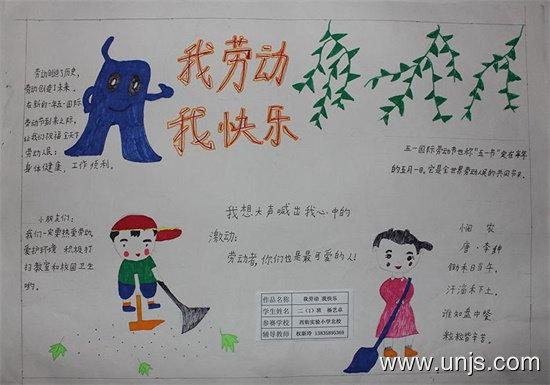 劳动创造了历史,
劳动创造了未来.
在新的一年五一国际
劳动节到来之际,
让我们祝福全天下
劳动人民:
身体健康,工作顺利.
我劳动
我快乐
五一国际劳动节也称“五一节”定在每年
的五月一日。它是全世界劳动人民的共同节日.
小朋友们:
我们一定要热爱劳动,
爱护环境 积极打
扫教室和校园卫生
哟.
我想大声喊出我心中的
激动:
劳动者,你们也是最可爱的人!
悯 农
唐·李绅
锄禾日当午,
汗滴禾下土.
谁知盘中餐
粒粒皆辛苦.
作品名称 我劳动 我快乐
学生姓名 二（1）班 杨艺卓
参赛学校 西街实验小学北校
辅导教师 权新玲 13835895369
www.unjs.com